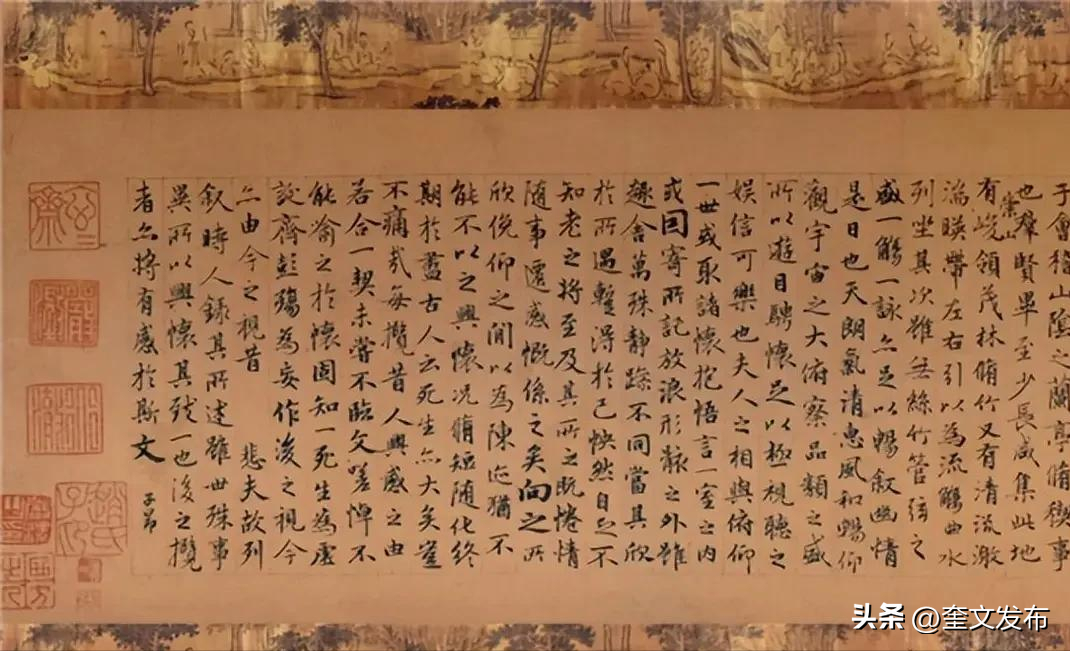 于會稽山陰之蘭亭脩稧事
也羣賢畢至少長咸集此地
有崇山峻領茂林脩竹又有清流激
湍暎帶左右引以為流觴曲水
列坐其次雖無絲竹管弦之
盛一觴一詠亦足以暢叙幽情
是日也天朗氣清惠風和暢仰
觀宇宙之大俯察品類之盛
所以遊目騁懷足以極視聽之
娛信可樂也夫人之相與俯仰
一世或取諸懷抱悟言一室之內
或因寄所託放浪形骸之外雖
趣舍萬殊靜躁不同當其欣
於所遇蹔得於己怏然自足不
知老之將至及其所之既惓情
隨事遷感慨係之矣向之所
欣俛仰之閒以為陳迹猶不
能不以之興懷況脩短隨化終
期於盡古人云死生亦大矣豈
不痛哉每攬昔人興感之由
若合一契未嘗不臨文嗟悼不
能喻之於懷固知一死生為虛
誕齊彭殤為妄作後之視今
亦由今之視昔 悲夫故列
叙時人錄其所述雖世殊事
異所以興懷其致一也後之攬
者亦將有感於斯文
子昂
趙氏子昂
头条 @奎文发布